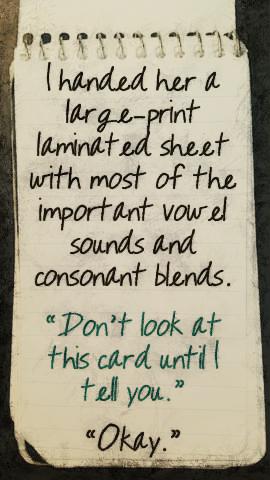 I handed her a
large-print
laminated sheet
with most of the
important vowel
sounds and
consonant blends.
“Don't look at
this card until I
tell you.”
“Okay.”